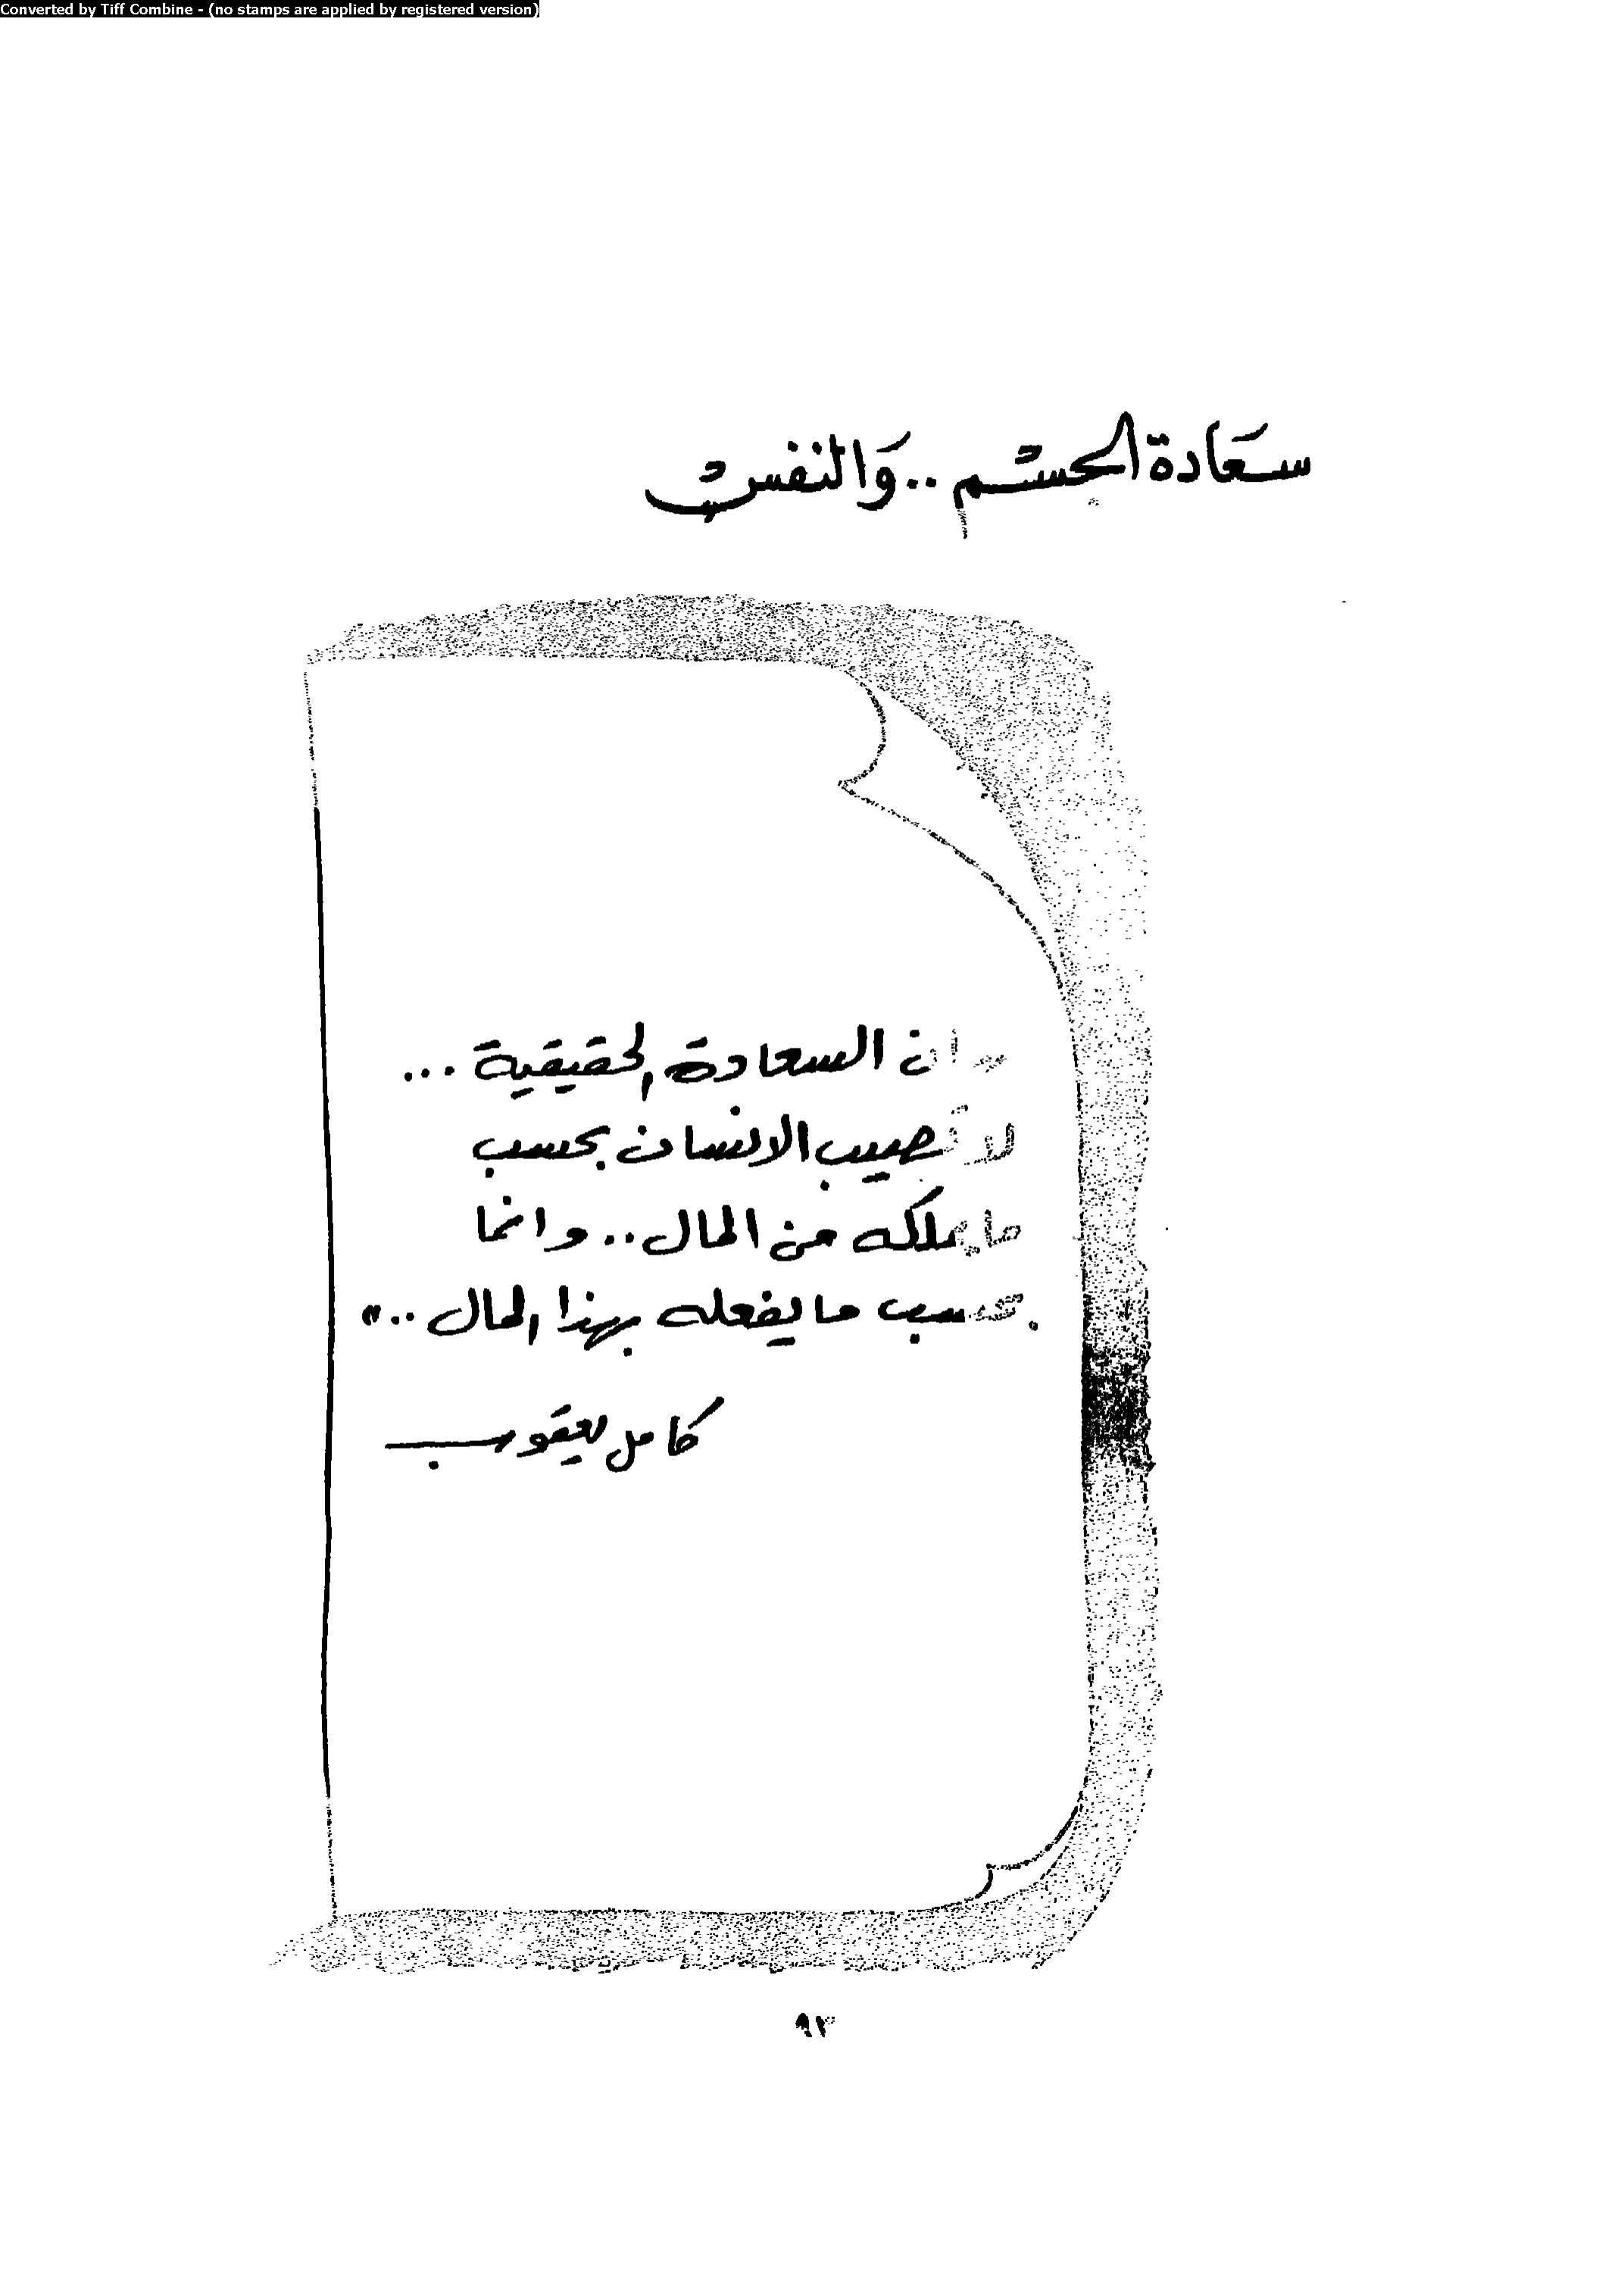 Converted by Tiff Combine - (no stamps are applied by registered version)
سعادة الجسم .. وَالنفس
"ان السعادة الحقيقية ...
لا تصيب الانسان بحسب
ما يملكه من المال .. وانما
بحسب ما يفعله بهذا المال .. "
كامل يعقوب
٩٣